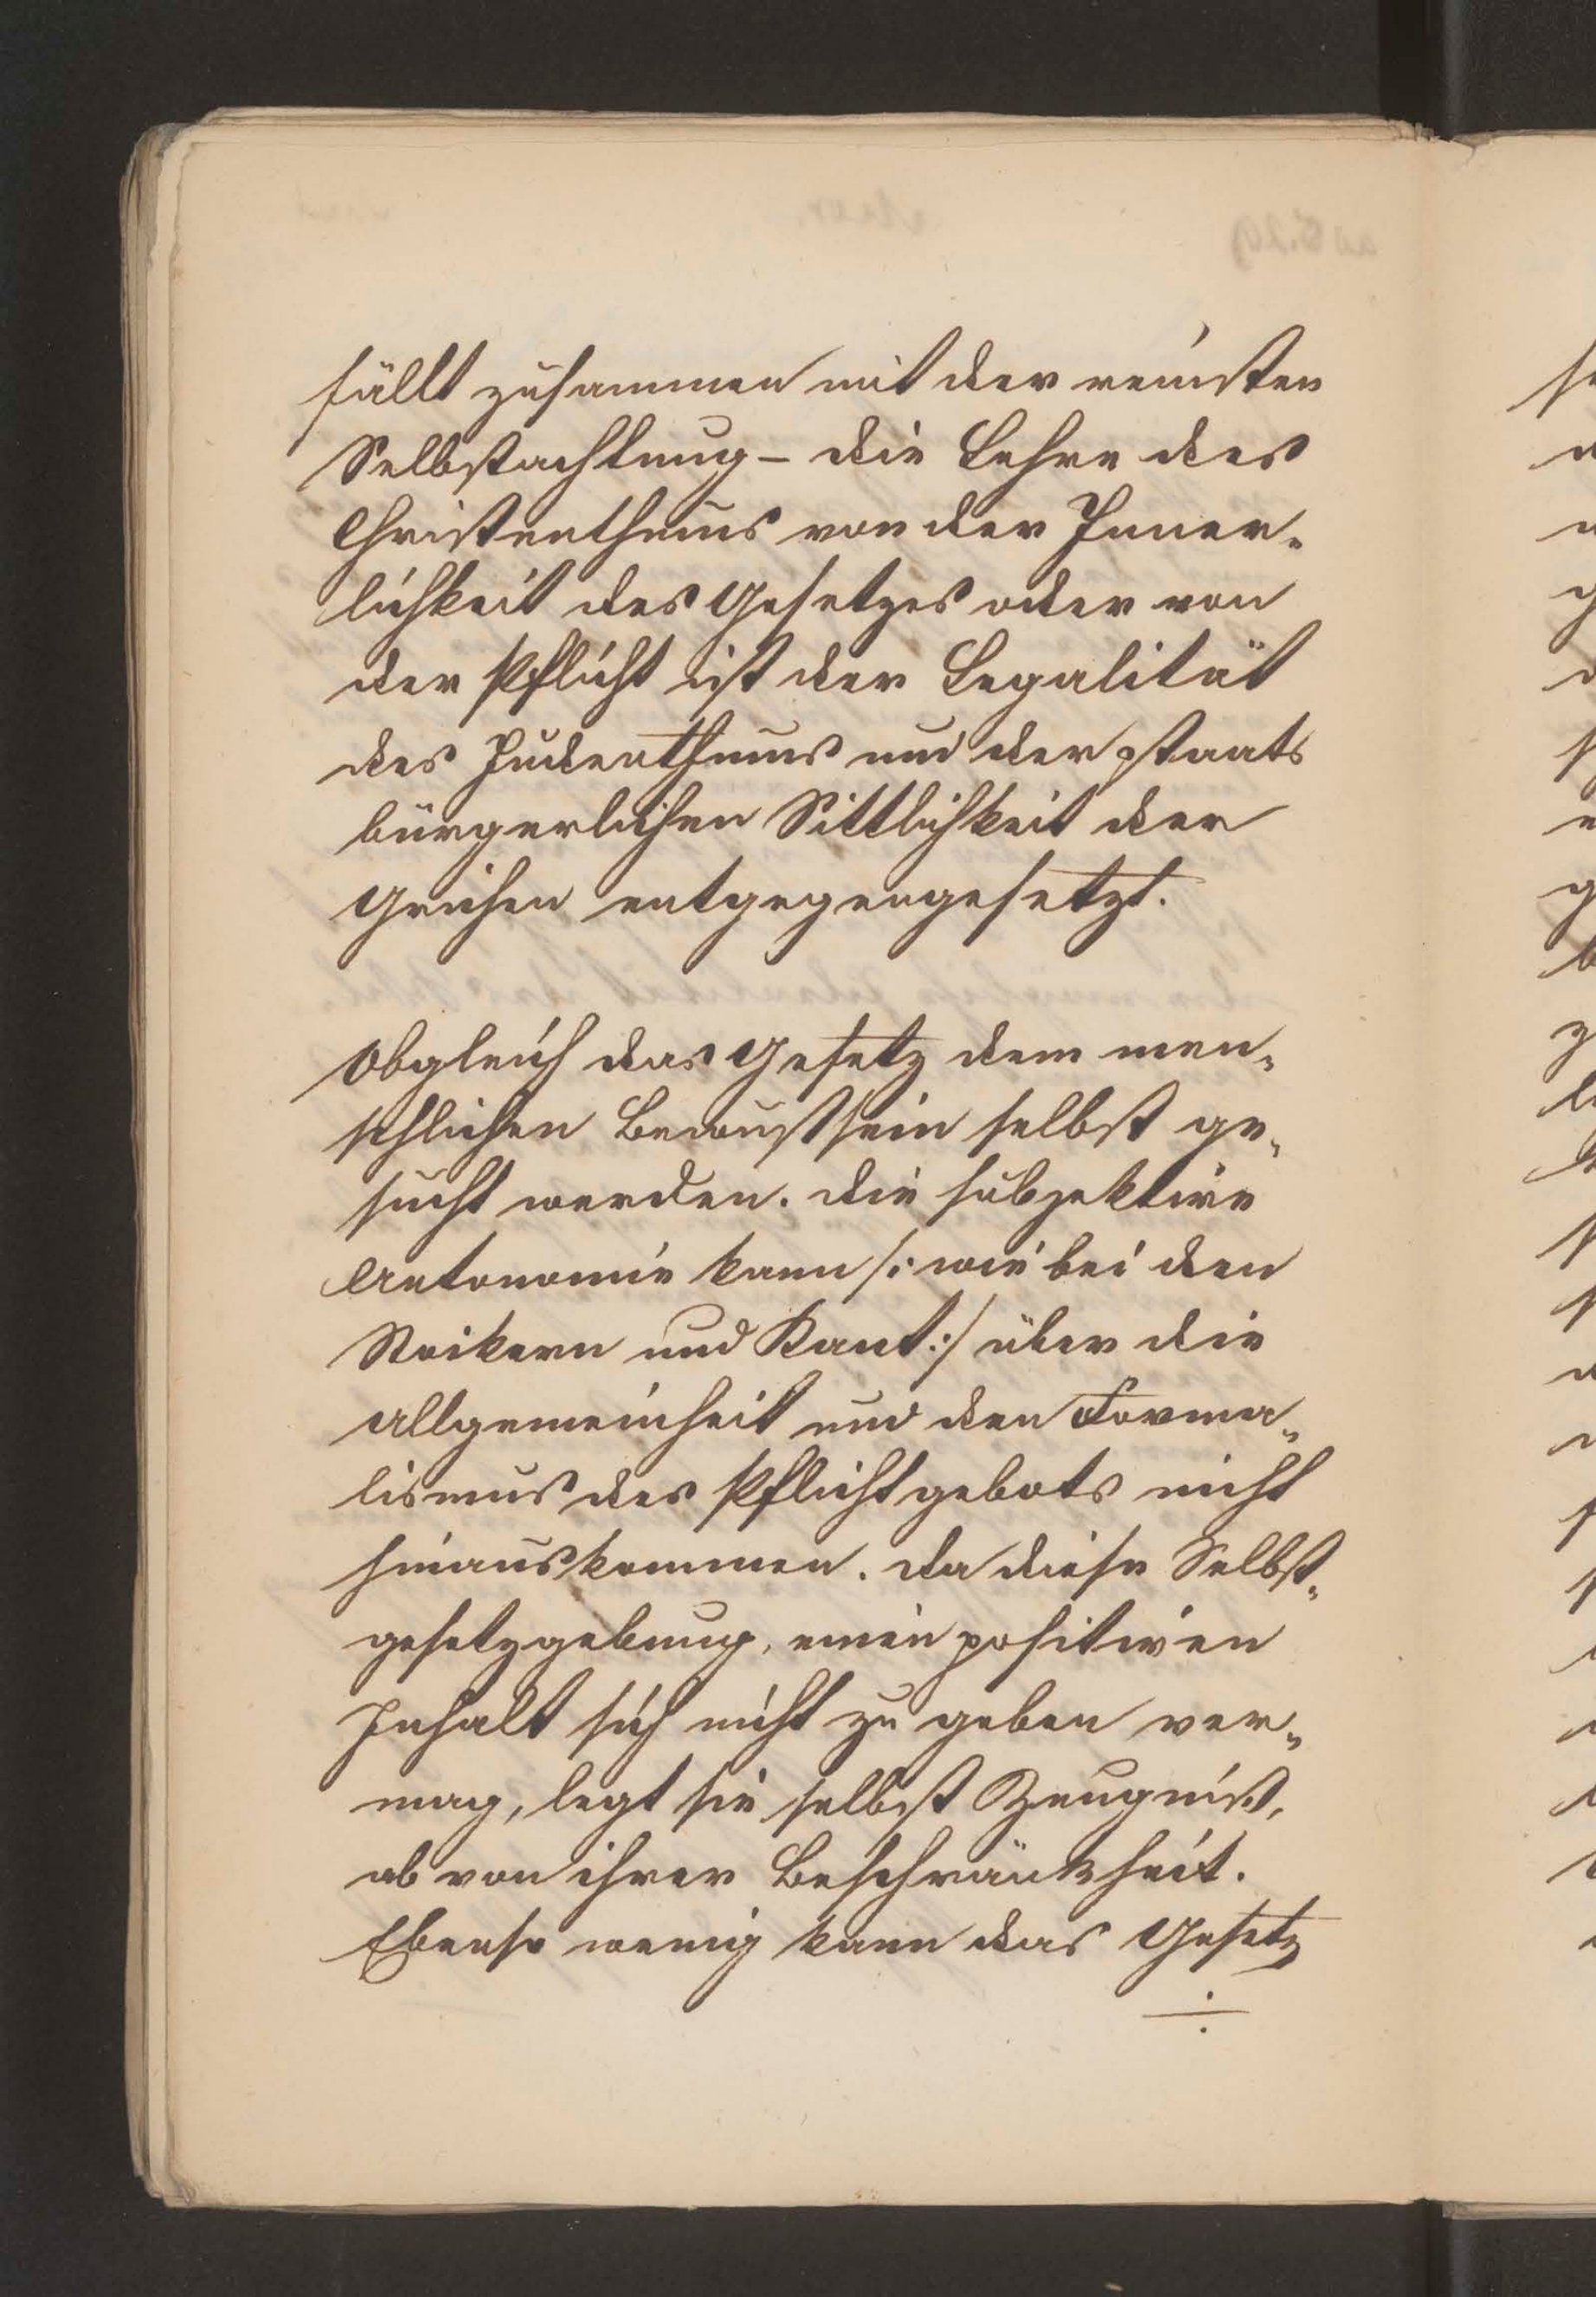 fällt zusammen mit der reinsten
Selbstachtung – die Lehre des
Christenthums von der Inner-
lichkeit des Gesetzes oder von
der Pflicht ist der Legalität
des Judenthums und der staats
bürgerlichen Sittlichkeit der
Griechen entgegengesetzt.
Obgleich das Gesetz dem men-
schlichen Bewustsein selbst ge-
sucht werden. Die subjektive
Autonomie kann /: wie bei den
Stoikern und Kant :/ über die
Allgemeinheit und den Forma-
lismus des Pflichtgebots nicht
hinauskommen. Da diese Selbst-
gesetzgebung, einen positiven
Inhalt sich nicht zu geben ver-
mag, legt sie selbst Zeugniß,
ab von ihrer Beschränktheit.
Ebenso wenig kann das Gesetz